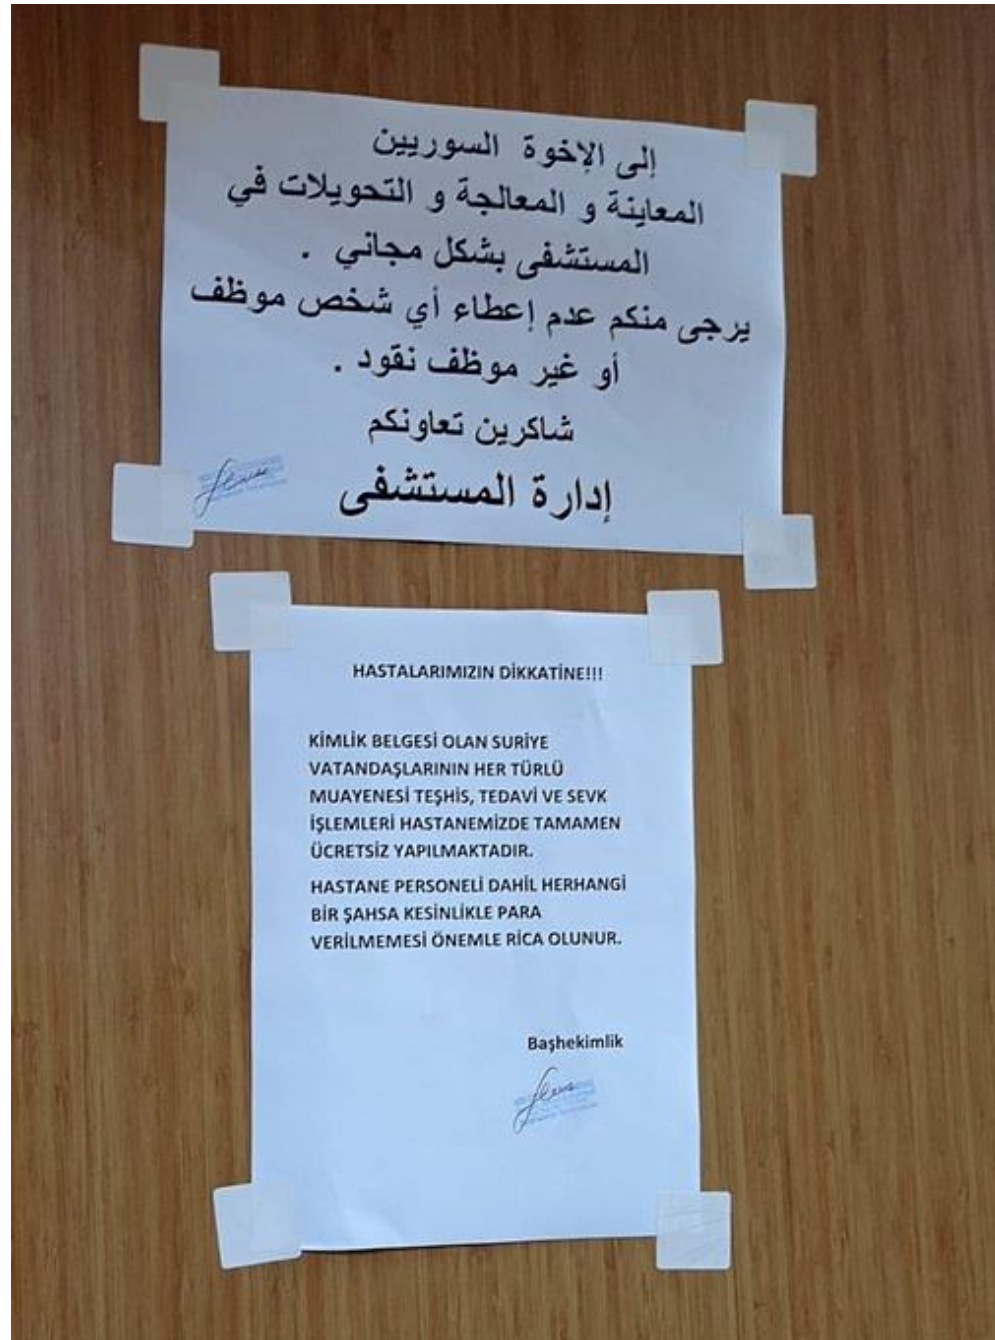 إلى الإخوة السوريين
المعاينة و المعالجة و التحويلات في
المستشفى بشكل مجاني .
يرجى منكم عدم إعطاء أي شخص موظف
أو غير موظف نقود .
شاكرين تعاونكم
إدارة المستشفى
HASTALARIMIZIN DİKKATİNE!!!
KİMLİK BELGESİ OLAN SURİYE
VATANDAŞLARININ HER TÜRLÜ
MUAYENESİ TEŞHİS, TEDAVİ VE SEVK
İŞLEMLERİ HASTANEMİZDE TAMAMEN
ÜCRETSİZ YAPILMAKTADIR.
HASTANE PERSONELİ DAHİL HERHANGİ
BİR ŞAHSA KESİNLİKLE PARA
VERİLMEMESİ ÖNEMLE RİCA OLUNUR.
Başhekimlik